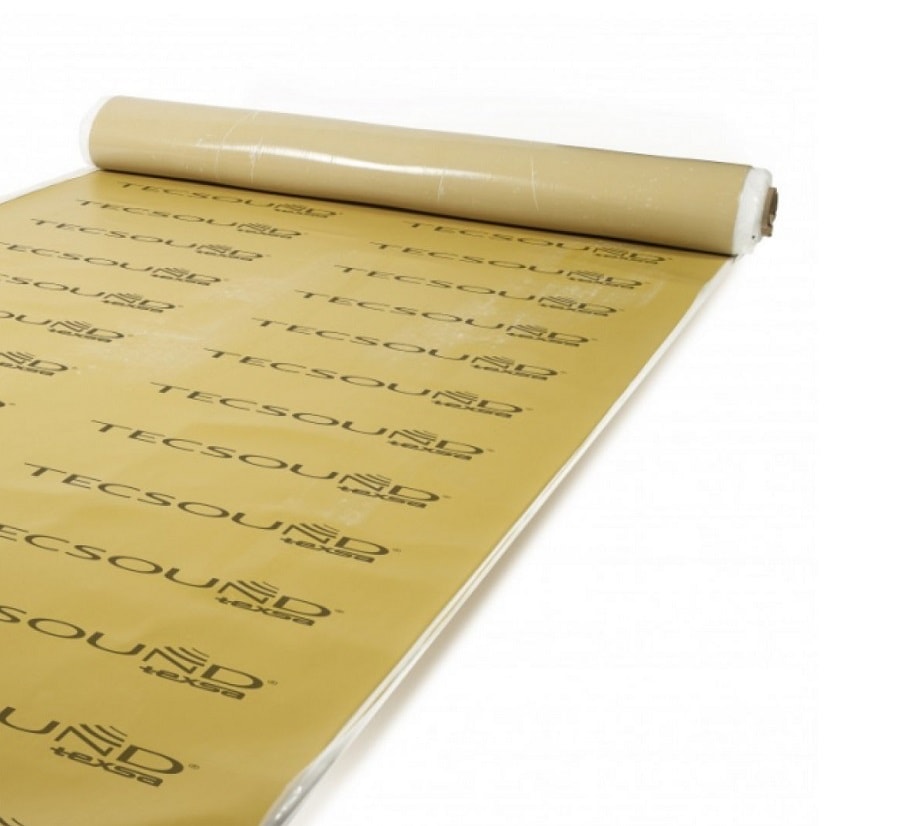 TECSOUND®
texsa
TECSOUND®
texsa
TECSOUND®
texsa
ECSOUND®
texsa
CSOUND®
texsa
OUND®
texsa
ND®
texsa
TECSOUND®
texsa
TECSOUND®
texsa
TECSOUND®
texsa
TECSOUND®
texsa
TECSOUND®
texsa
TECSOUND®
texsa
TECSOUND®
texsa
TECSOUND®
texsa
TECSOUND®
texsa
ECSOUND®
texsa
SOUND®
texsa
OUND®
texsa